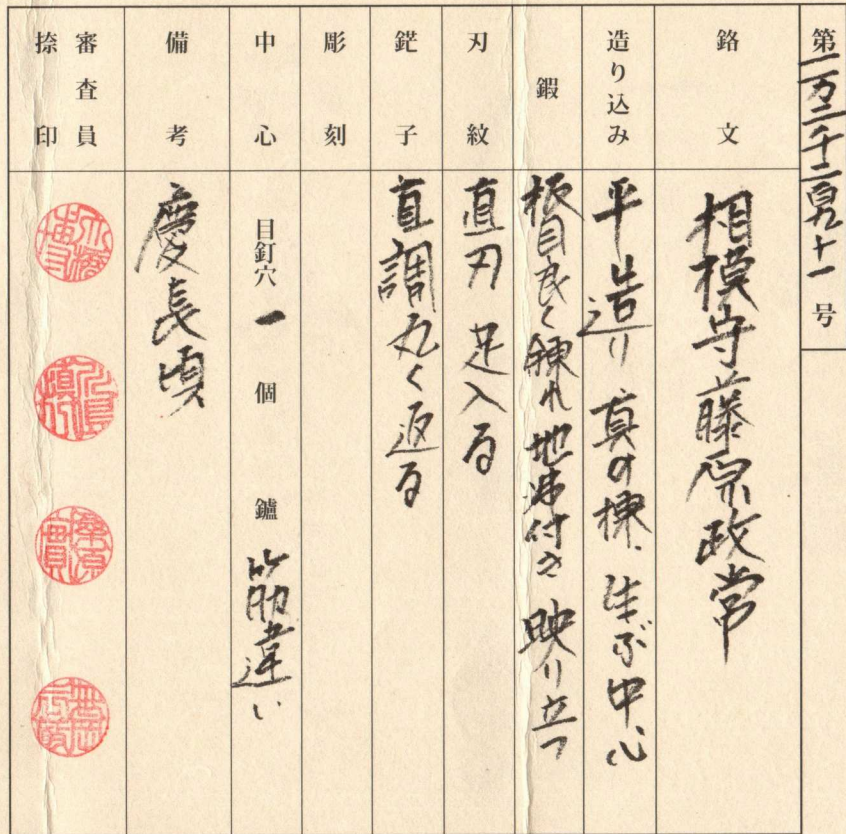 第一万二千二百九十一号
銘文 相模守藤原政常
造り込み 平造り 真の棟、生ぶ中心
鍜 板目良く錬れ地沸付き 映り立つ
刃紋 直刃 足入る
鋩子 直調丸く返る
彫刻
中心 目釘穴 一 個 鑢 筋違い
備考 慶長頃
審査員
捺印